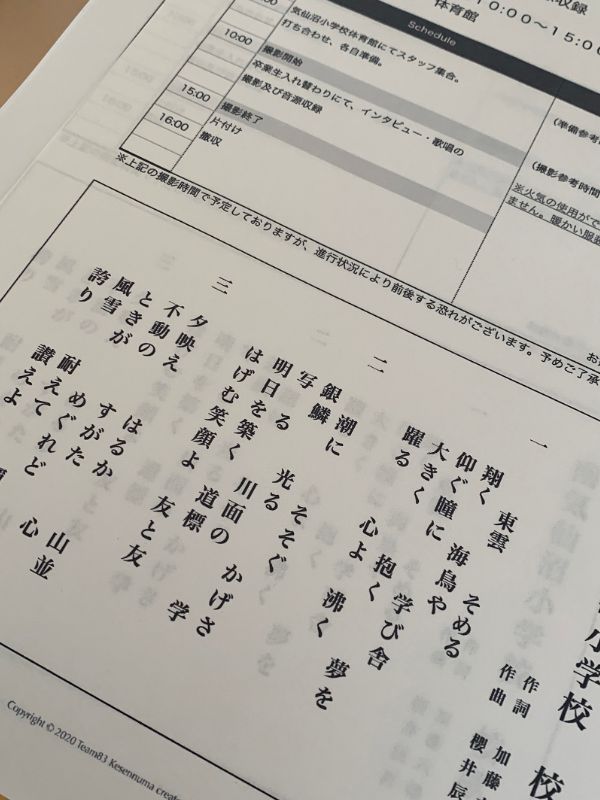 収録
10:00〜15:00
体育館
Schedule
気仙沼小学校体育館にてスタッフ集合。
打ち合わせ、各自準備。
10:00
撮影開始
卒業生入れ替わりにて、インタビュー・歌唱の
撮影及び音源収録
15:00
撮影終了
片付け
16:00
撤収
(撮影参考時間
※火気の使用がで
ません。暖かい服装
※上記の撮影時間で予定しておりますが、進行状況により前後する恐れがございます。予めご了承
小学校 校
作詞 加藤
作曲 櫻井辰
一
東雲 そめる
翔く 海鳥や
仰ぐ瞳に 学び舎
大きく 抱く
躍る 心よ 沸く 夢を
二
潮に そそぐ
銀鱗 光る
写る 川面の かげさ
明日を築く 道標
はげむ笑顔よ 友と友 学
三
夕映え はるか 山並
不動の すがた
ときが めぐれど 心
風雪 耐えて
誇り 讃えよ
Copyright © 2020 Team83 Kesennuma creat